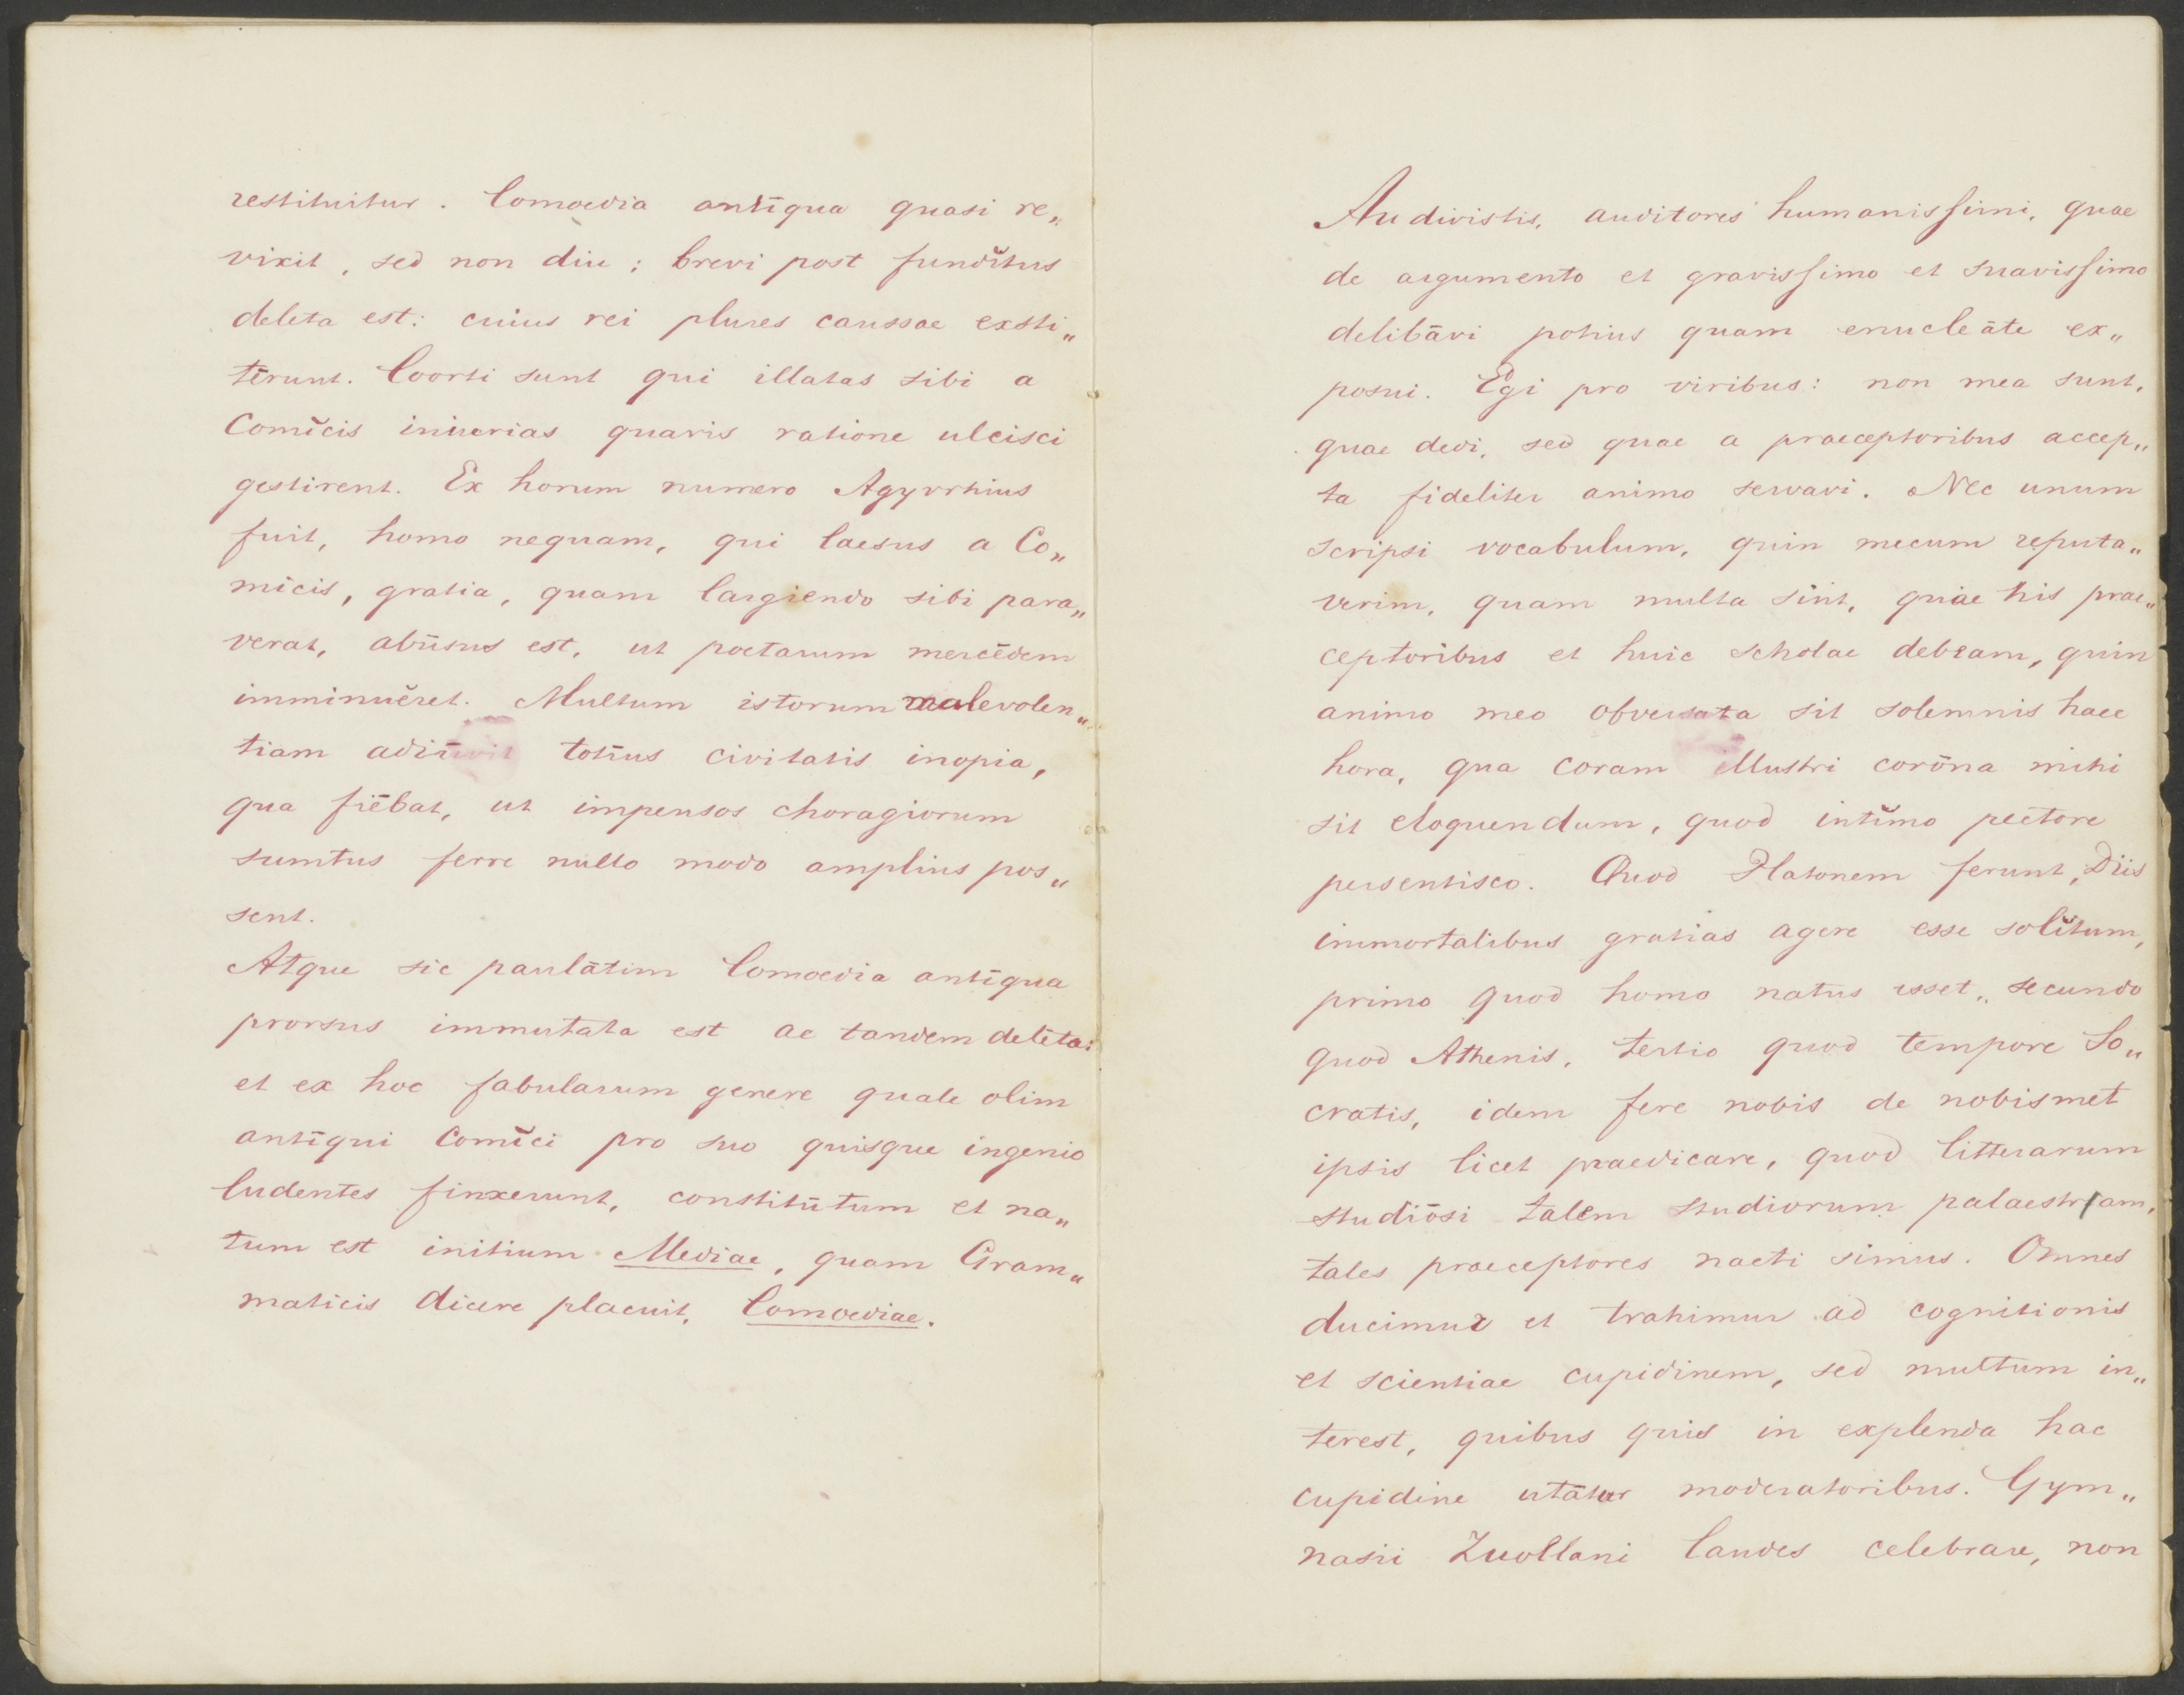 restituitur. Comoedia antīqua quasi re„
vixit, sed non diu; brevi post fundĭtus
deleta est: cuius rei plures caussae exsti„
tērunt. Coorti sunt qui illatas sibi a
Comĭcis iniurias quavis ratione ulcisci
gestirent. Ex horum numero Agyrrhius
fuit, homo nequam, qui laesus a Co„
mĭcis, gratia, quam largiendo sibi para„
verat, abūsus est, ut poetarum mercēdem
imminuĕret. Multum istorum malevolen„
tiam adiūvit totīus civitatis inopia,
qua fiēbat, ut impensos choragiorum
sumtus ferre nullo modo amplius pos„
sent.
Atque sic paulātim Comoedia antīqua
prorsus immutata est ac tandem delēta:
et ex hoc fabularum genere quale olim
antīqui Comĭci pro suo quisque ingenio
ludentes finxerunt, constitūtum et na„
tum est initium Mediae, quam Gram„
maticis dicere placuit, Comoediae.
Audivistis, auditores humanissimi, quae
de argumento et gravissimo et suavissimo
delibāvi potius quam enucleāte ex„
posui. Egi pro viribus: non mea sunt,
quae dedi, sed quae a praeceptoribus accep„
ta fideliter animo servavi. Nec unum
scripsi vocabulum, quin mecum reputa„
verim, quam multa sint, quae his prae„
ceptoribus et huic scholae debeam, quin
animo meo obversata sit solemnis haec
hora, qua coram illustri corōna mihi
sit eloquendum, quod intĭmo pectore
persentisco. Quod Platonem ferunt, Diis
immortalibus gratias agere esse solĭtum,
primo quod homo natus esset, secundo
quod Athenis, tertio quod tempore So„
cratis, idem fere nobis de nobismet
ipsis licet praedicare, quod litterarum
studiōsi talem studiorum palaestram,
tales praeceptores nacti simus. Omnes
ducimur et trahimur ad cognitionis
et scientiae cupidinem, sed multum in„
terest, quibus quis in explenda hac
cupidine utātur moderatoribus. Gym„
nasii Zuollani laudes celebrare, non